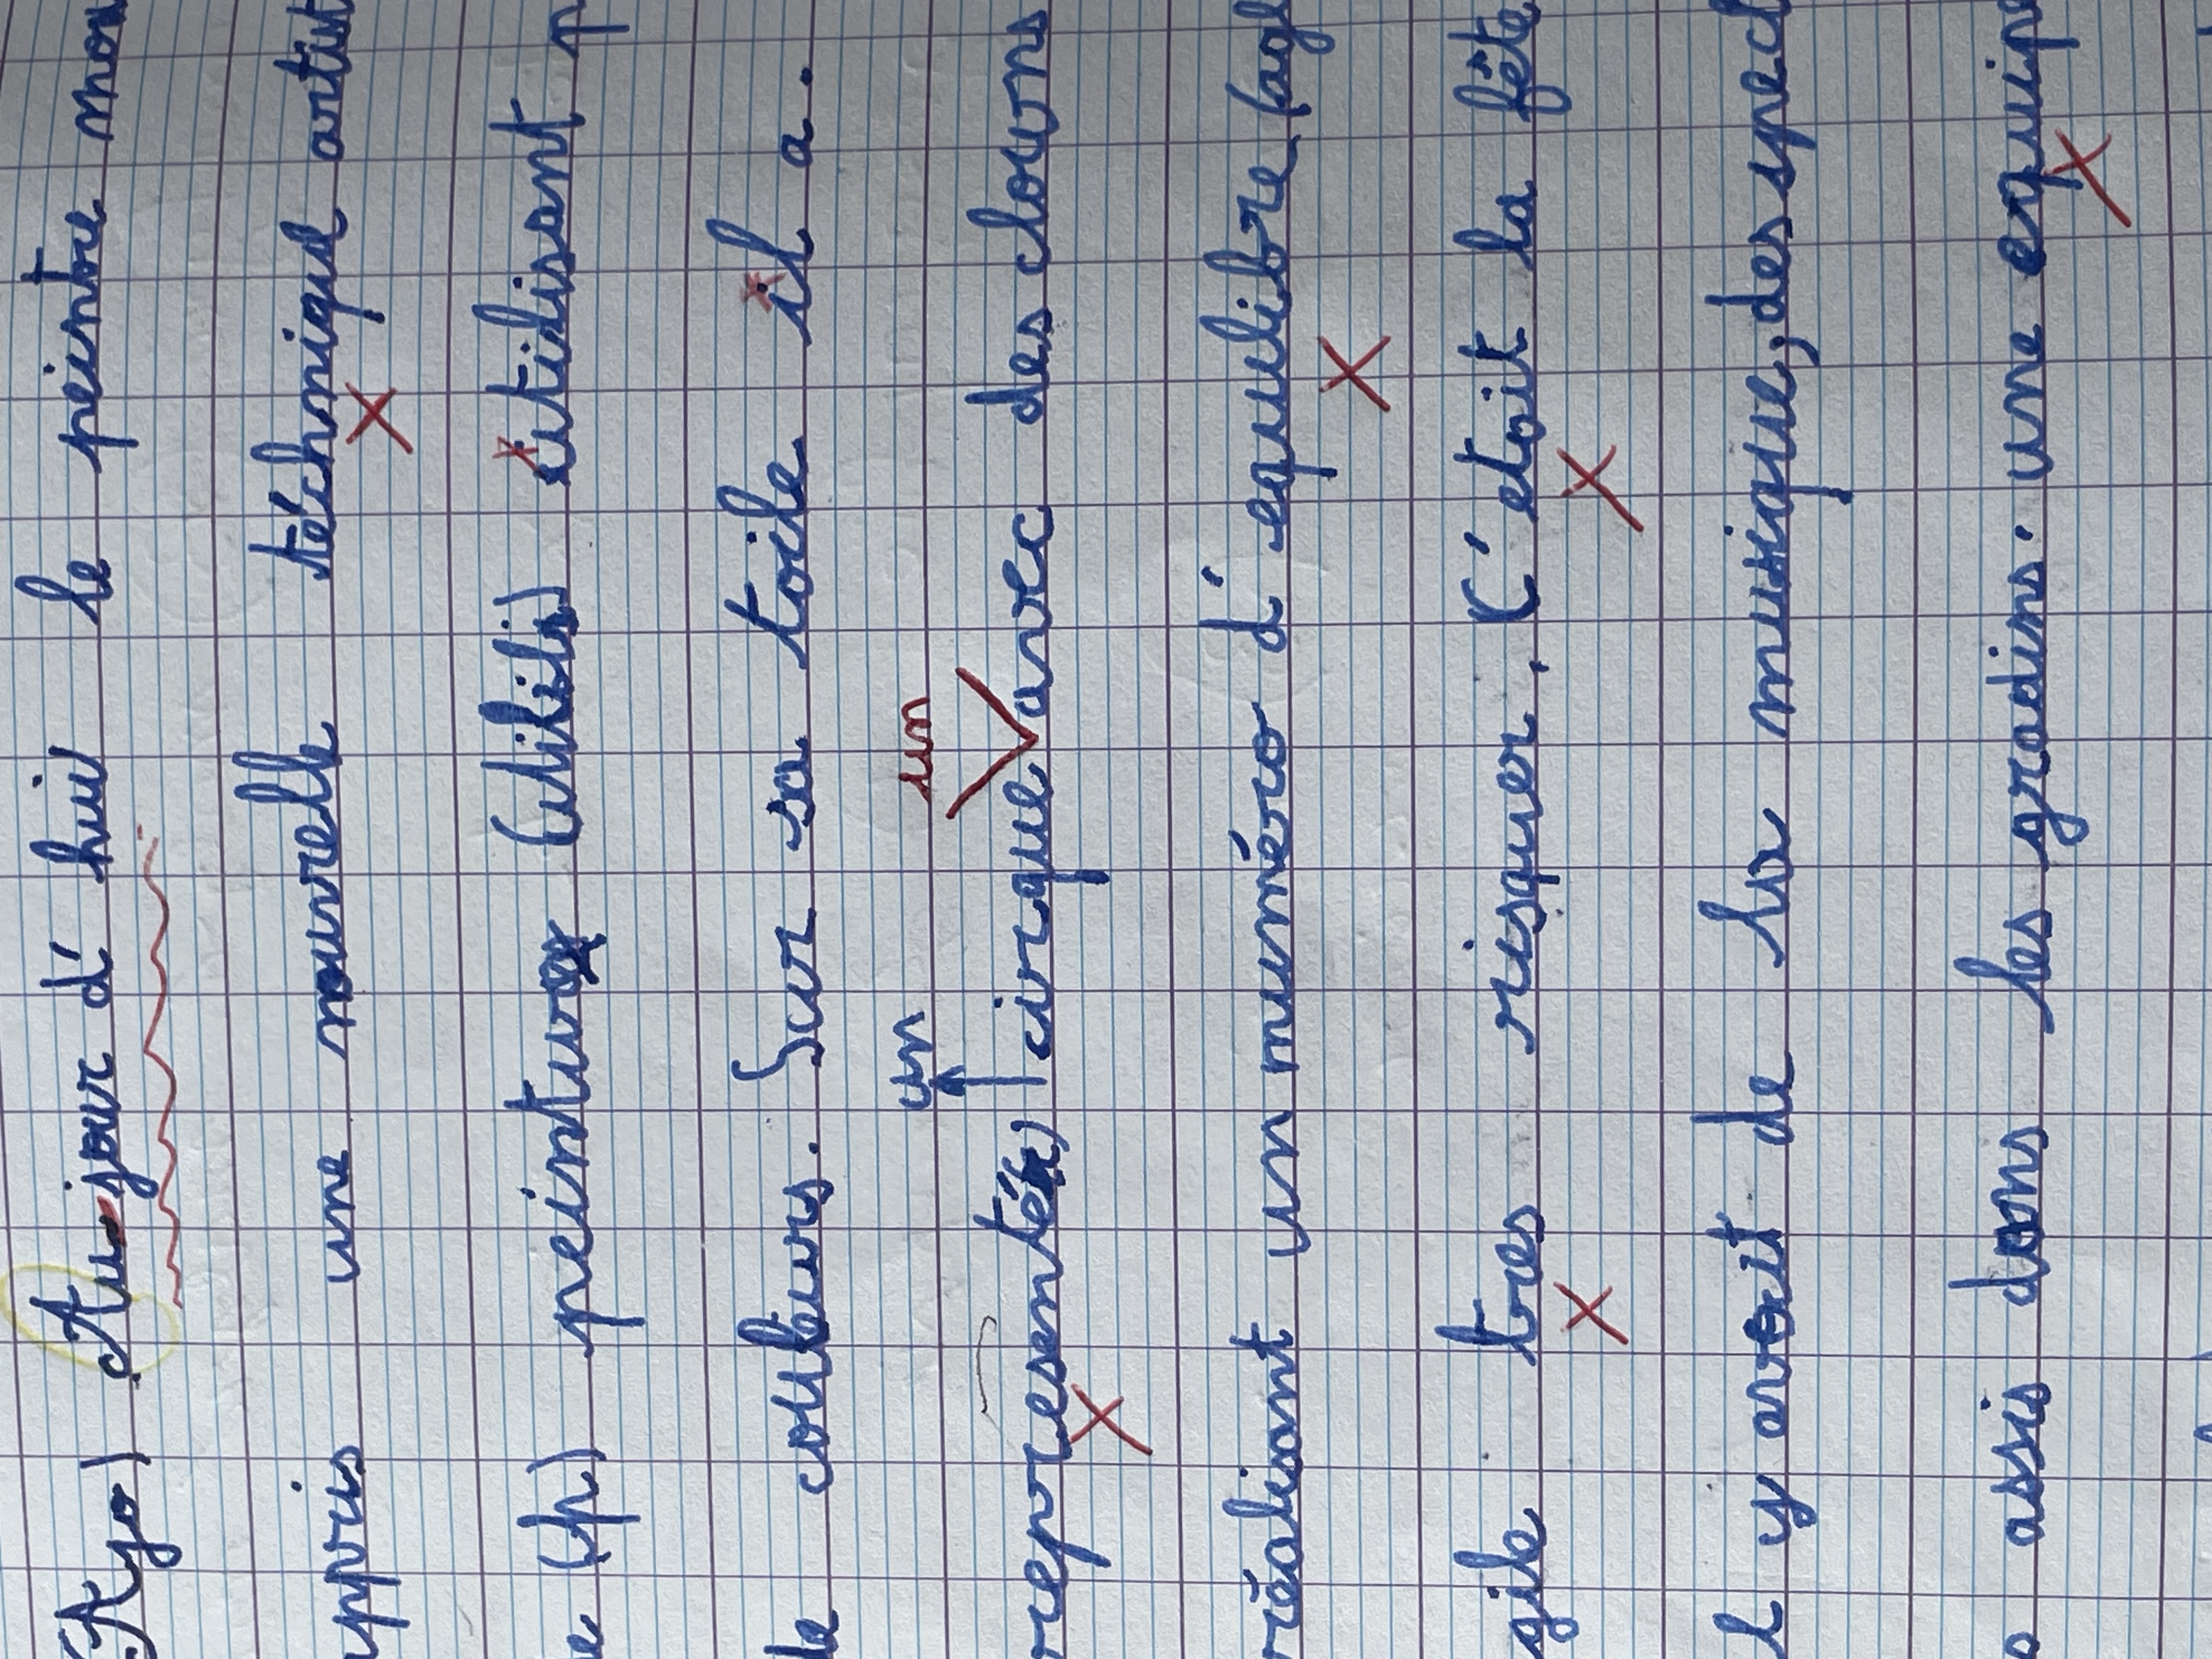 (Ajo) Au-jour d' hui le peintre mon
appris une nouvelle téchnique artist
e (p) peinture utilisant p
de couleurs. Sur sa toile il a.
un un
representé cirque avec des clowns
réalisant un numéro d' equilibre (agl
gile tres risquer. C' etait la fête
l y avait de la musique, des spect
assis dans les gradins. une equipe